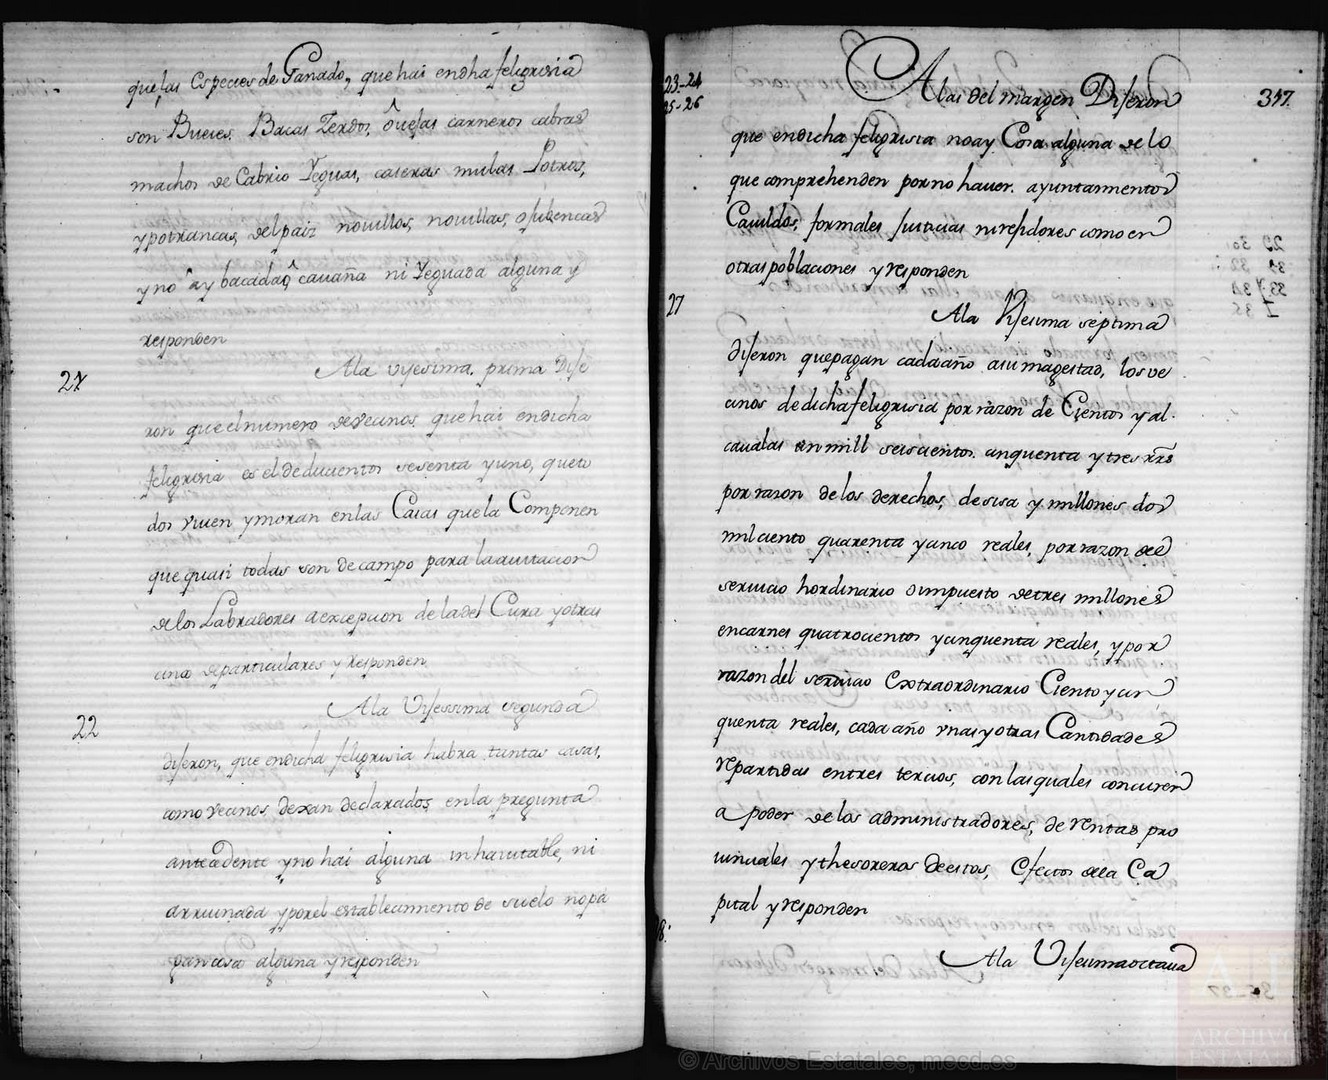 que, las Especies de Ganado, que hai en dha feligrisia
son Bueies. Bacas Zerdos, ôuejas carneros cabras
machos de Cabrio Yeguas, caseras mulas Potros,
y potrancas, del paiz nouillos, nouillas,
y no ay bacada, ô cauaña ni Yeguada alguna y
responden
21
Ala vijesima. prima Dije
ron que el numero de vecinos que hai en dicha
feligrisia es el de ducientos sesenta y uno, que to
dos viuen y moran en las Casas que la Componen
que quasi todas son de campo para la auitacion
de los Labradores a excepcion de la del Cura y otras
cinco de particulares y responden
22
Ala Visessima segunda
dijeron, que en dicha feligrisia habra tantas casas,
como vecinos dexan declarados en la pregunta
antecedente y no hai alguna inhauitable, ni
arruinada y por el establecimiento de suelo no pa
gan cosa alguna y responden
23-24
25-26
Alas del margen Dijeron
357.
que en dicha feligrisia no ay Cosa alguna de lo
que comprehenden por no hauer. ayuntamientos
Cauildos, formales Justicias ni rejidores como en
otras poblaciones y responden
27
Ala Vijesima septima
dijeron que pagan cada año a su magestad, los ve
cinos de dicha feligrisia por razon de Cientos y al.
caualas un mill seiscientos cinquenta y tres rrs
por razon de los derechos, de sisa y millones dos
mil ciento quarenta y cinco reales, por razon del
seruicio hordinario o impuesto de tres millones
en carnes quatrocientos y cinquenta reales, y por
razon del seruicio Extraordinario Ciento y cin
quenta reales, cada año vnas y otras Cantidades
repartidas en tres tercios, con las quales concurren
a poder de los administradores, de rentas pro
uinciales y thesoreros de estos, efectos de la Ca
pital y responden
8:
Ala Vijesima octaua